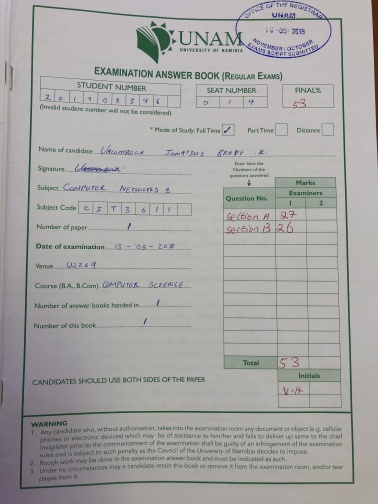 OFFICE OF THE REGISTRAR
UNAM
2018
NOVEMBER / OCTOBER
EXAMS SCRIPT SUBMITTED
UNAM
UNIVERSITY OF NAMIBIA
EXAMINATION ANSWER BOOK (REGULAR EXAMS)
STUDENT NUMBER SEAT NUMBER FINAL%
0 1 4 53
(Invalid student number will not be considered)
* Mode of Study: Full Time ✓ Part Time Distance
Name of candidate IGNATIUS
Signature
Enter here the Numbers of the questions answered
Marks
Examiners
Question No. 1 2
Subject COMPUTER NETWORKS 1
Subject Code C I T 3 6 1 1
Section A 27
Section B 26
Number of paper 1
Date of examination 13 - 05 - 2018
Venue W269
Course (B.A., B.Com) COMPUTER SCIENCE
Number of answer books handed in 1
Number of this book 1
Total 53
Initials
V.H
CANDIDATES SHOULD USE BOTH SIDES OF THE PAPER
WARNING
1. Any candidate who, without authorisation, takes into the examination room any document or object (e.g. cellular
phones or electronic devices) which may be of assistance to him/her and fails to deliver up same to the chief
invigilator prior to the commencement of the examination shall be guilty of an infringement of the examination
rules and is subject to such penalty as the Council of the University of Namibia decides to impose.
2. Rough work may be done in the examination answer book and must be indicated as such.
3. Under no circumstances may a candidate retain this book or remove it from the examination room, and/or tear
pages from it